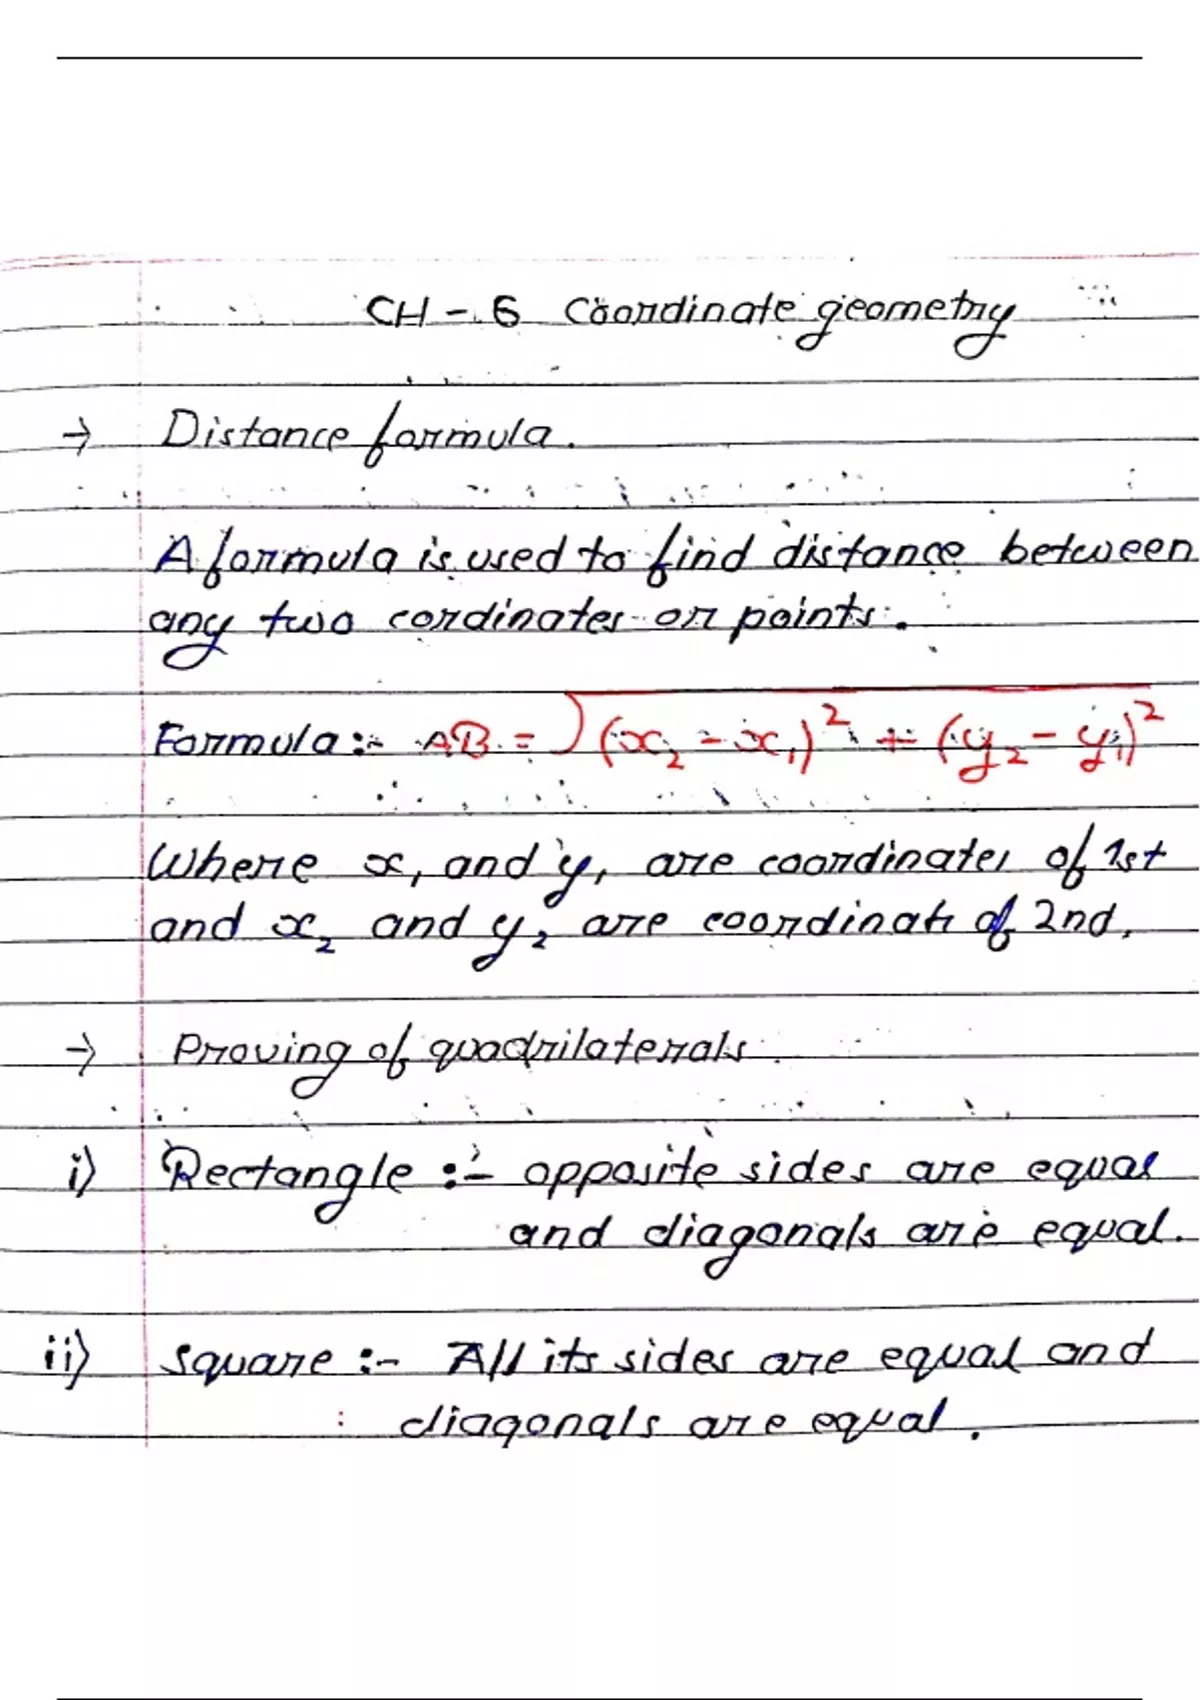 CH - 6 Coordinate geometry
→ Distance formula.
A formula is used to find distance between
any two cordinates or points.
Formula :- AB = √(x₂ - x₁)² + (y₂ - y₁)²
Where x₁ and y₁ are coordinates of 1st
and x₂ and y₂ are coordinats of 2nd.
→ Proving of quadrilaterals.
i) Rectangle :- opposite sides are equal
and diagonals are equal.
ii) square :- All its sides are equal and
diagonals are equal.